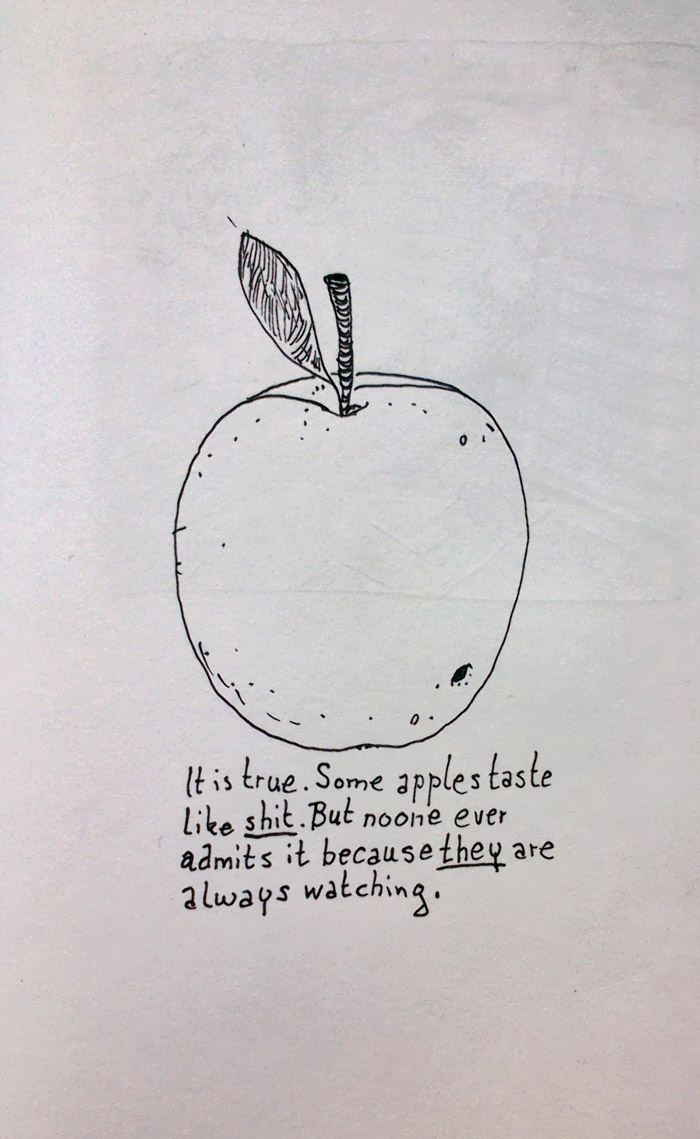 It is true. Some apples taste
like shit. But noone ever
admits it because they are
always watching.